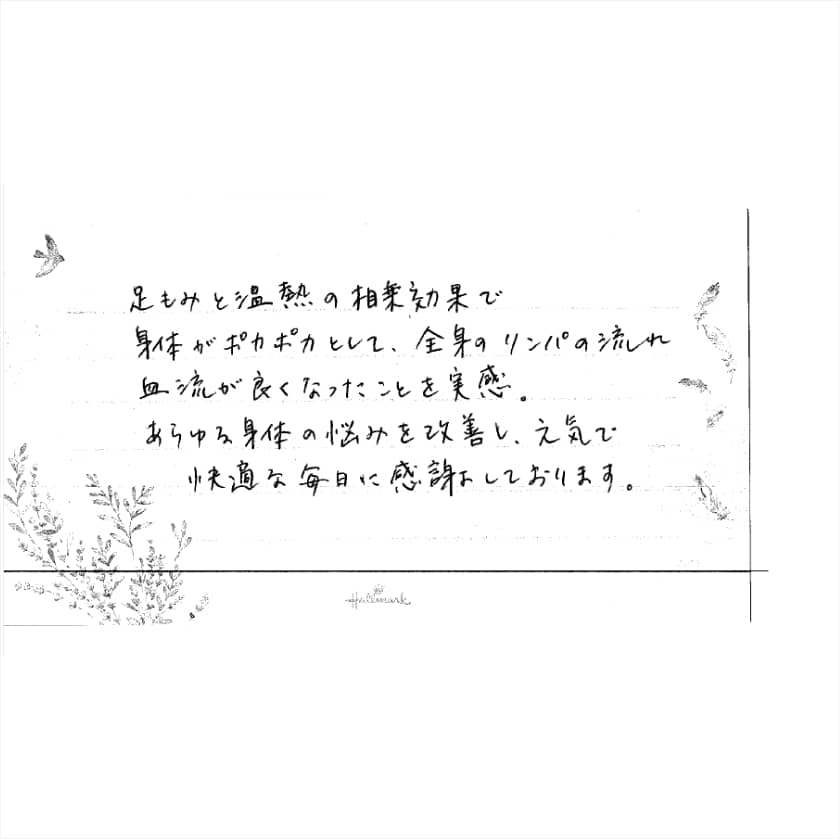 足もみと温熱の相乗効果で
身体がポカポカとして、全身のリンパの流れ
血流が良くなったことを実感。
あらゆる身体の悩みを改善し、元気で
快適な毎日に感謝しております。
Hallmark